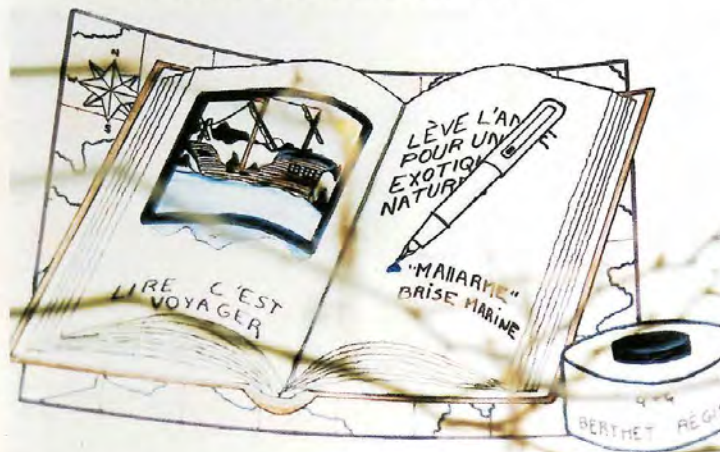 N
S
LIRE C'EST
VOYAGER
LÈVE L'AN
POUR UN
EXOTIQU
NATUR
"MAllARME"
BRISE MARINE
BERTHET RÉGIS